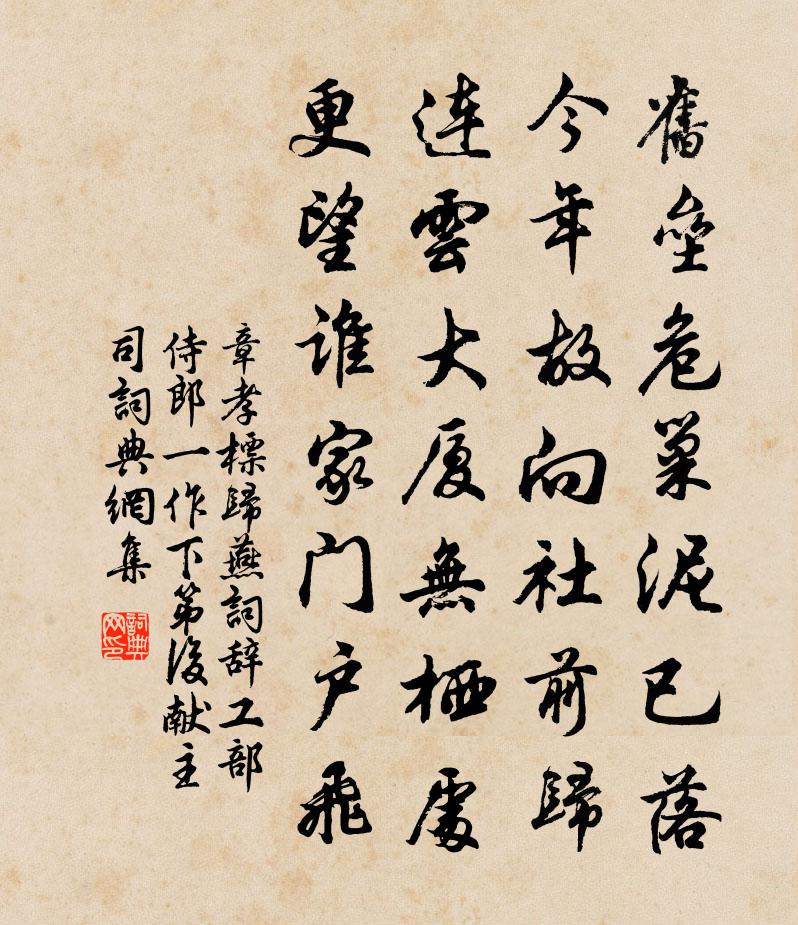 舊壘危巢泥已落
今年故向社前歸
連雲大厦無栖處
更望誰家門户飛
章孝標歸燕詞辞工部
侍郎一作下第後献主
司詞典網集
詞典
网印